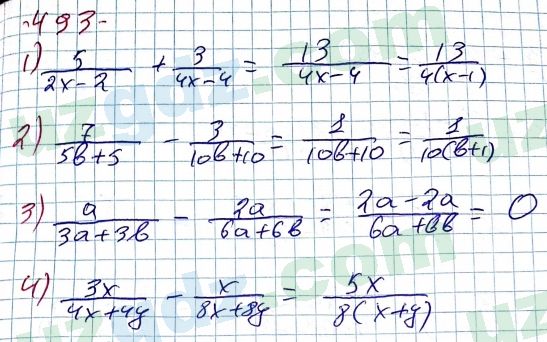 -493-
1) 5/(2x-2) + 3/(4x-4) = 13/(4x-4) = 13/4(x-1)
2) 7/(5b+5) - 3/(10b+10) = 1/(10b+10) = 1/10(b+1)
3) a/(3a+3b) - 2a/(6a+6b) = (2a-2a)/(6a+6b) = 0
4) 3x/(4x+4y) - x/(8x+8y) = 5x/8(x+y)